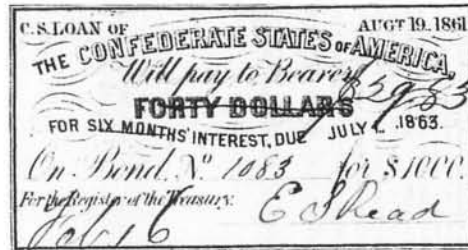 C.S. LOAN OF AUGT 19.. 1861
THE CONFEDERATE STATES OF AMERICA,
Will pay to Bearer
FORTY DOLLARS
FOR SIX MONTHS' INTEREST, DUE JULY 1.. 1863.
On Bond No. 1083 for $1000.
For the Register of the Treasury:
E S Read